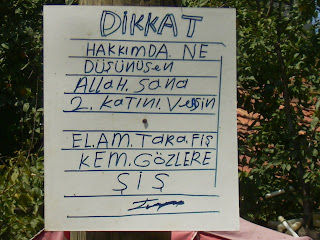 DİKKAT
HAKKIMDA NE
DÜŞÜNÜSEN
ALLAH. SANA
2. KATINI. VERSİN
EL.AM.TARA.FİŞ
KEM.GÖZLERE
ŞİŞ